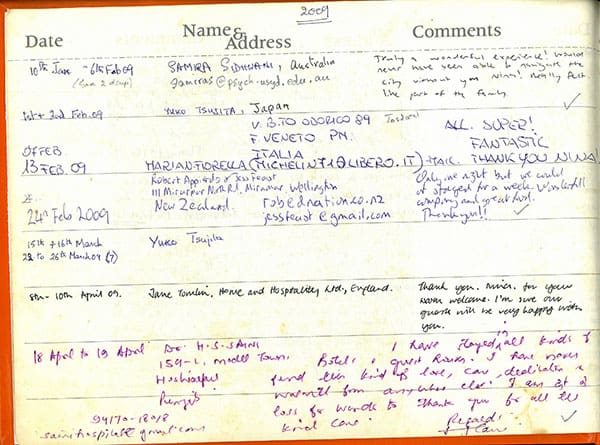 2009
Date
Name & Address
Comments
10th Jan - 6th Feb 09
SAMIRA SIDHWANI, Australia
@psych.usyd.edu.au
Truly a wonderful experience! Would
never have been able to navigate the
city without you Nina! Really felt
like part of the family.
1st + 2nd Feb. 09
YUKO TSUJITA, Japan
V. B.TO ODORICO 89
F. VENETO PN.
ITALIA
ALL. SUPER!
FANTASTIC
THANK YOU NINA!
FEB
13 FEB. 09
MARIANFIORELLA (MICHELINT1@LIBERO.IT) MAIL.
24th Feb 2009
Robert & Jess Feast
111 Miramar North Rd, Miramar Wellington
New Zealand.
rob@dnation.co.nz
jessfeast@gmail.com
Only one night but we could
of stayed for a week. Wonderful
and great food.
Thankyou!!
15th + 16th March
22 to 26th March 09 (7)
Yuko Tsujita
8th - 10th April 09.
Jane Tomlin, Home and Hospitality Ltd, England.
Thank you. Nina. for your
warm welcome. I'm sure our
guests will be very happy with
you.
18 April to 19 April
Dr. H.S. SAINI
159-L, Model Town
Hoshiarpur
Punjab
94170-18018
I have stayed in all kinds of
Hotels & guest houses. I have never
found this kind of love, care, dedication &
warmth from anywhere else. I am at a
loss for words to thank you for all the
kind care.
Regards